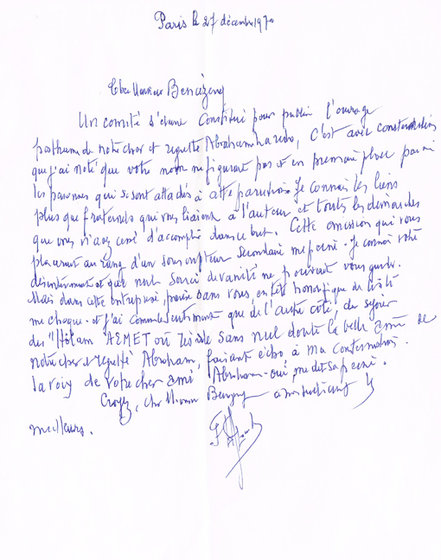 Paris le 27 décembre 197
Cher Monsieur Benazeraf
Un comité s'étant constitué pour publier l'ouvrage
posthume de notre cher et regretté Abraham Laredo, c'est avec consternation
que j'ai noté que votre nom ne figurait pas et en première place parmi
les personnes qui se sont attachés à cette parution. Je connais les liens
plus que fraternels qui vous liaient à l'auteur et toutes les démarches
que vous n'avez cessé d'accomplir dans ce but. Cette omission qui vous
placerait au rang d'un souscripteur secondaire me peine. Je connais votre
désintéressement et que nul souci de vanité ne pouvait vous guider.
Mais dans cette entreprise, sans vous en tête honorifique de liste
me choque. et j'ai comme le sentiment que de l'autre côté, du séjour
des "Hôlam AEMET où réside sans nul doute la belle âme de
notre cher et regretté Abraham, faisant écho à ma consternation.
la voix de votre cher ami Abraham. oui me dit sa peine.
Croyez, cher Monsieur à mes sentiments les
meilleurs.